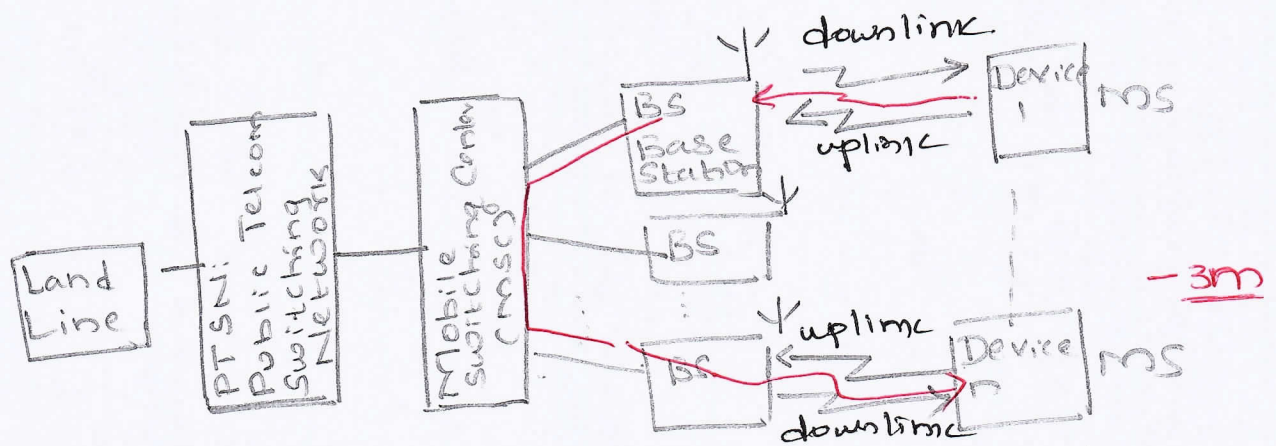 Land
Line
PTSN:
Public Telecom
Switching
Network
Mobile
Switching Center
(MSC)
BS
Base
Station
downlink
uplink
Device
1
MS
BS
BS
uplink
downlink
Device
n
MS
- 3m